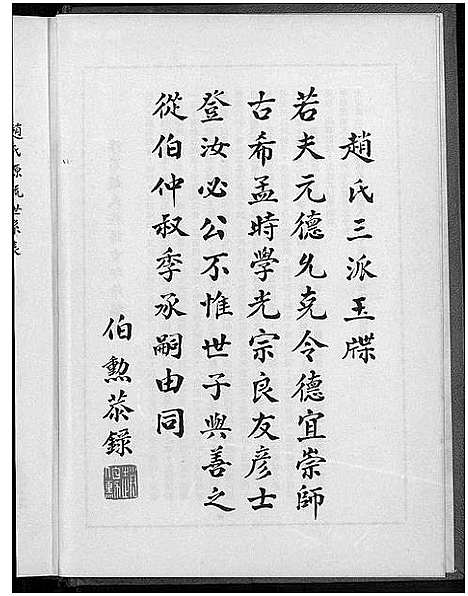 趙氏三派玉牒
若夫元德允克令德宜崇師
古希孟時學光宗良友彥士
登汝必公不惟世子與善之
從伯仲叔季承嗣由同
伯勲恭錄
趙氏源流世系表